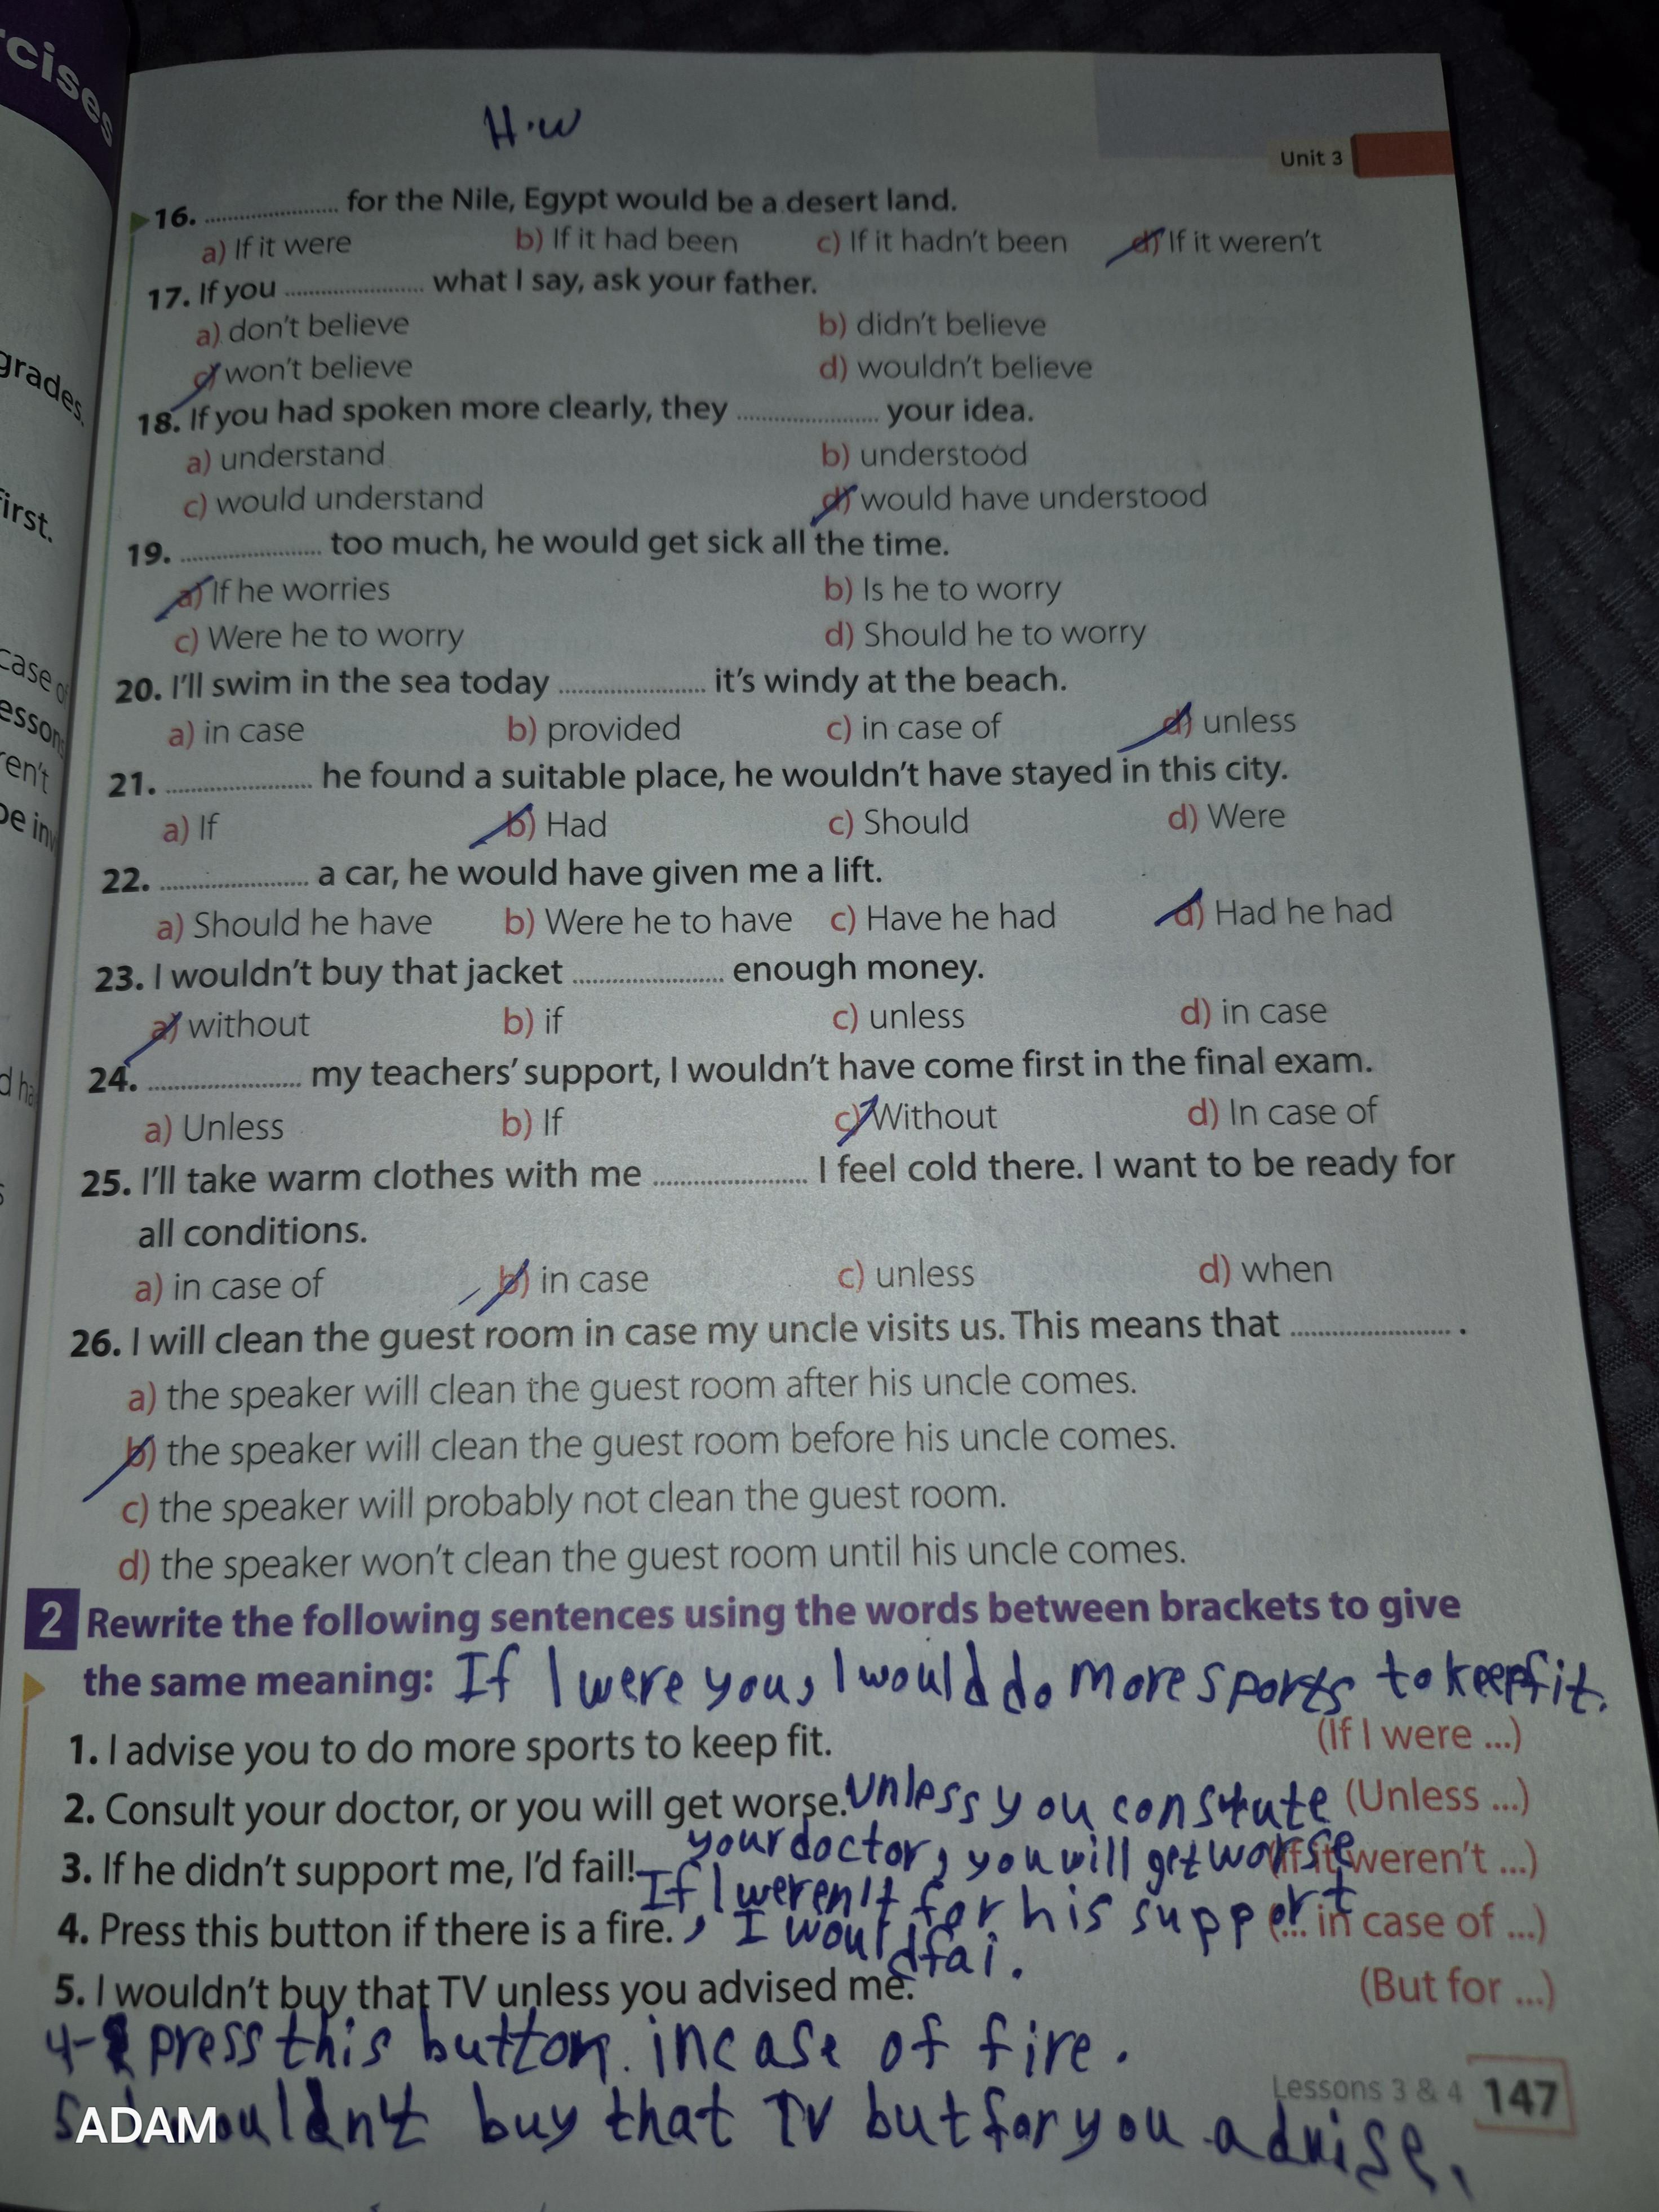 cises
H.W
Unit 3
16. .................... for the Nile, Egypt would be a desert land.
a) If it were b) If it had been c) If it hadn't been d) If it weren't
17. If you .................... what I say, ask your father.
a) don't believe b) didn't believe
c) won't believe d) wouldn't believe
18. If you had spoken more clearly, they .................... your idea.
a) understand b) understood
c) would understand d) would have understood
19. .................... too much, he would get sick all the time.
a) If he worries b) Is he to worry
c) Were he to worry d) Should he to worry
20. I'll swim in the sea today .................... it's windy at the beach.
a) in case b) provided c) in case of d) unless
21. .................... he found a suitable place, he wouldn't have stayed in this city.
a) If b) Had c) Should d) Were
22. .................... a car, he would have given me a lift.
a) Should he have b) Were he to have c) Have he had d) Had he had
23. I wouldn't buy that jacket .................... enough money.
a) without b) if c) unless d) in case
24. .................... my teachers' support, I wouldn't have come first in the final exam.
a) Unless b) If c) Without d) In case of
25. I'll take warm clothes with me .................... I feel cold there. I want to be ready for
all conditions.
a) in case of b) in case c) unless d) when
26. I will clean the guest room in case my uncle visits us. This means that .................... .
a) the speaker will clean the guest room after his uncle comes.
b) the speaker will clean the guest room before his uncle comes.
c) the speaker will probably not clean the guest room.
d) the speaker won't clean the guest room until his uncle comes.
2 Rewrite the following sentences using the words between brackets to give
the same meaning: If I were you, I would do more sports to keep fit.
1. I advise you to do more sports to keep fit. (If I were ...)
2. Consult your doctor, or you will get worse. Unless you (Unless ...)
your doctor, you will get worse
3. If he didn't support me, I'd fail! (If it weren't ...)
If I weren't for his support
4. Press this button if there is a fire. , I would fai. (... in case of ...)
5. I wouldn't buy that TV unless you advised me. (But for ...)
4- press this button. incase of fire.
Lessons 3 & 4 147
5 buy that TV but for you advise.
ADAM
grades.
first.
case of
en't